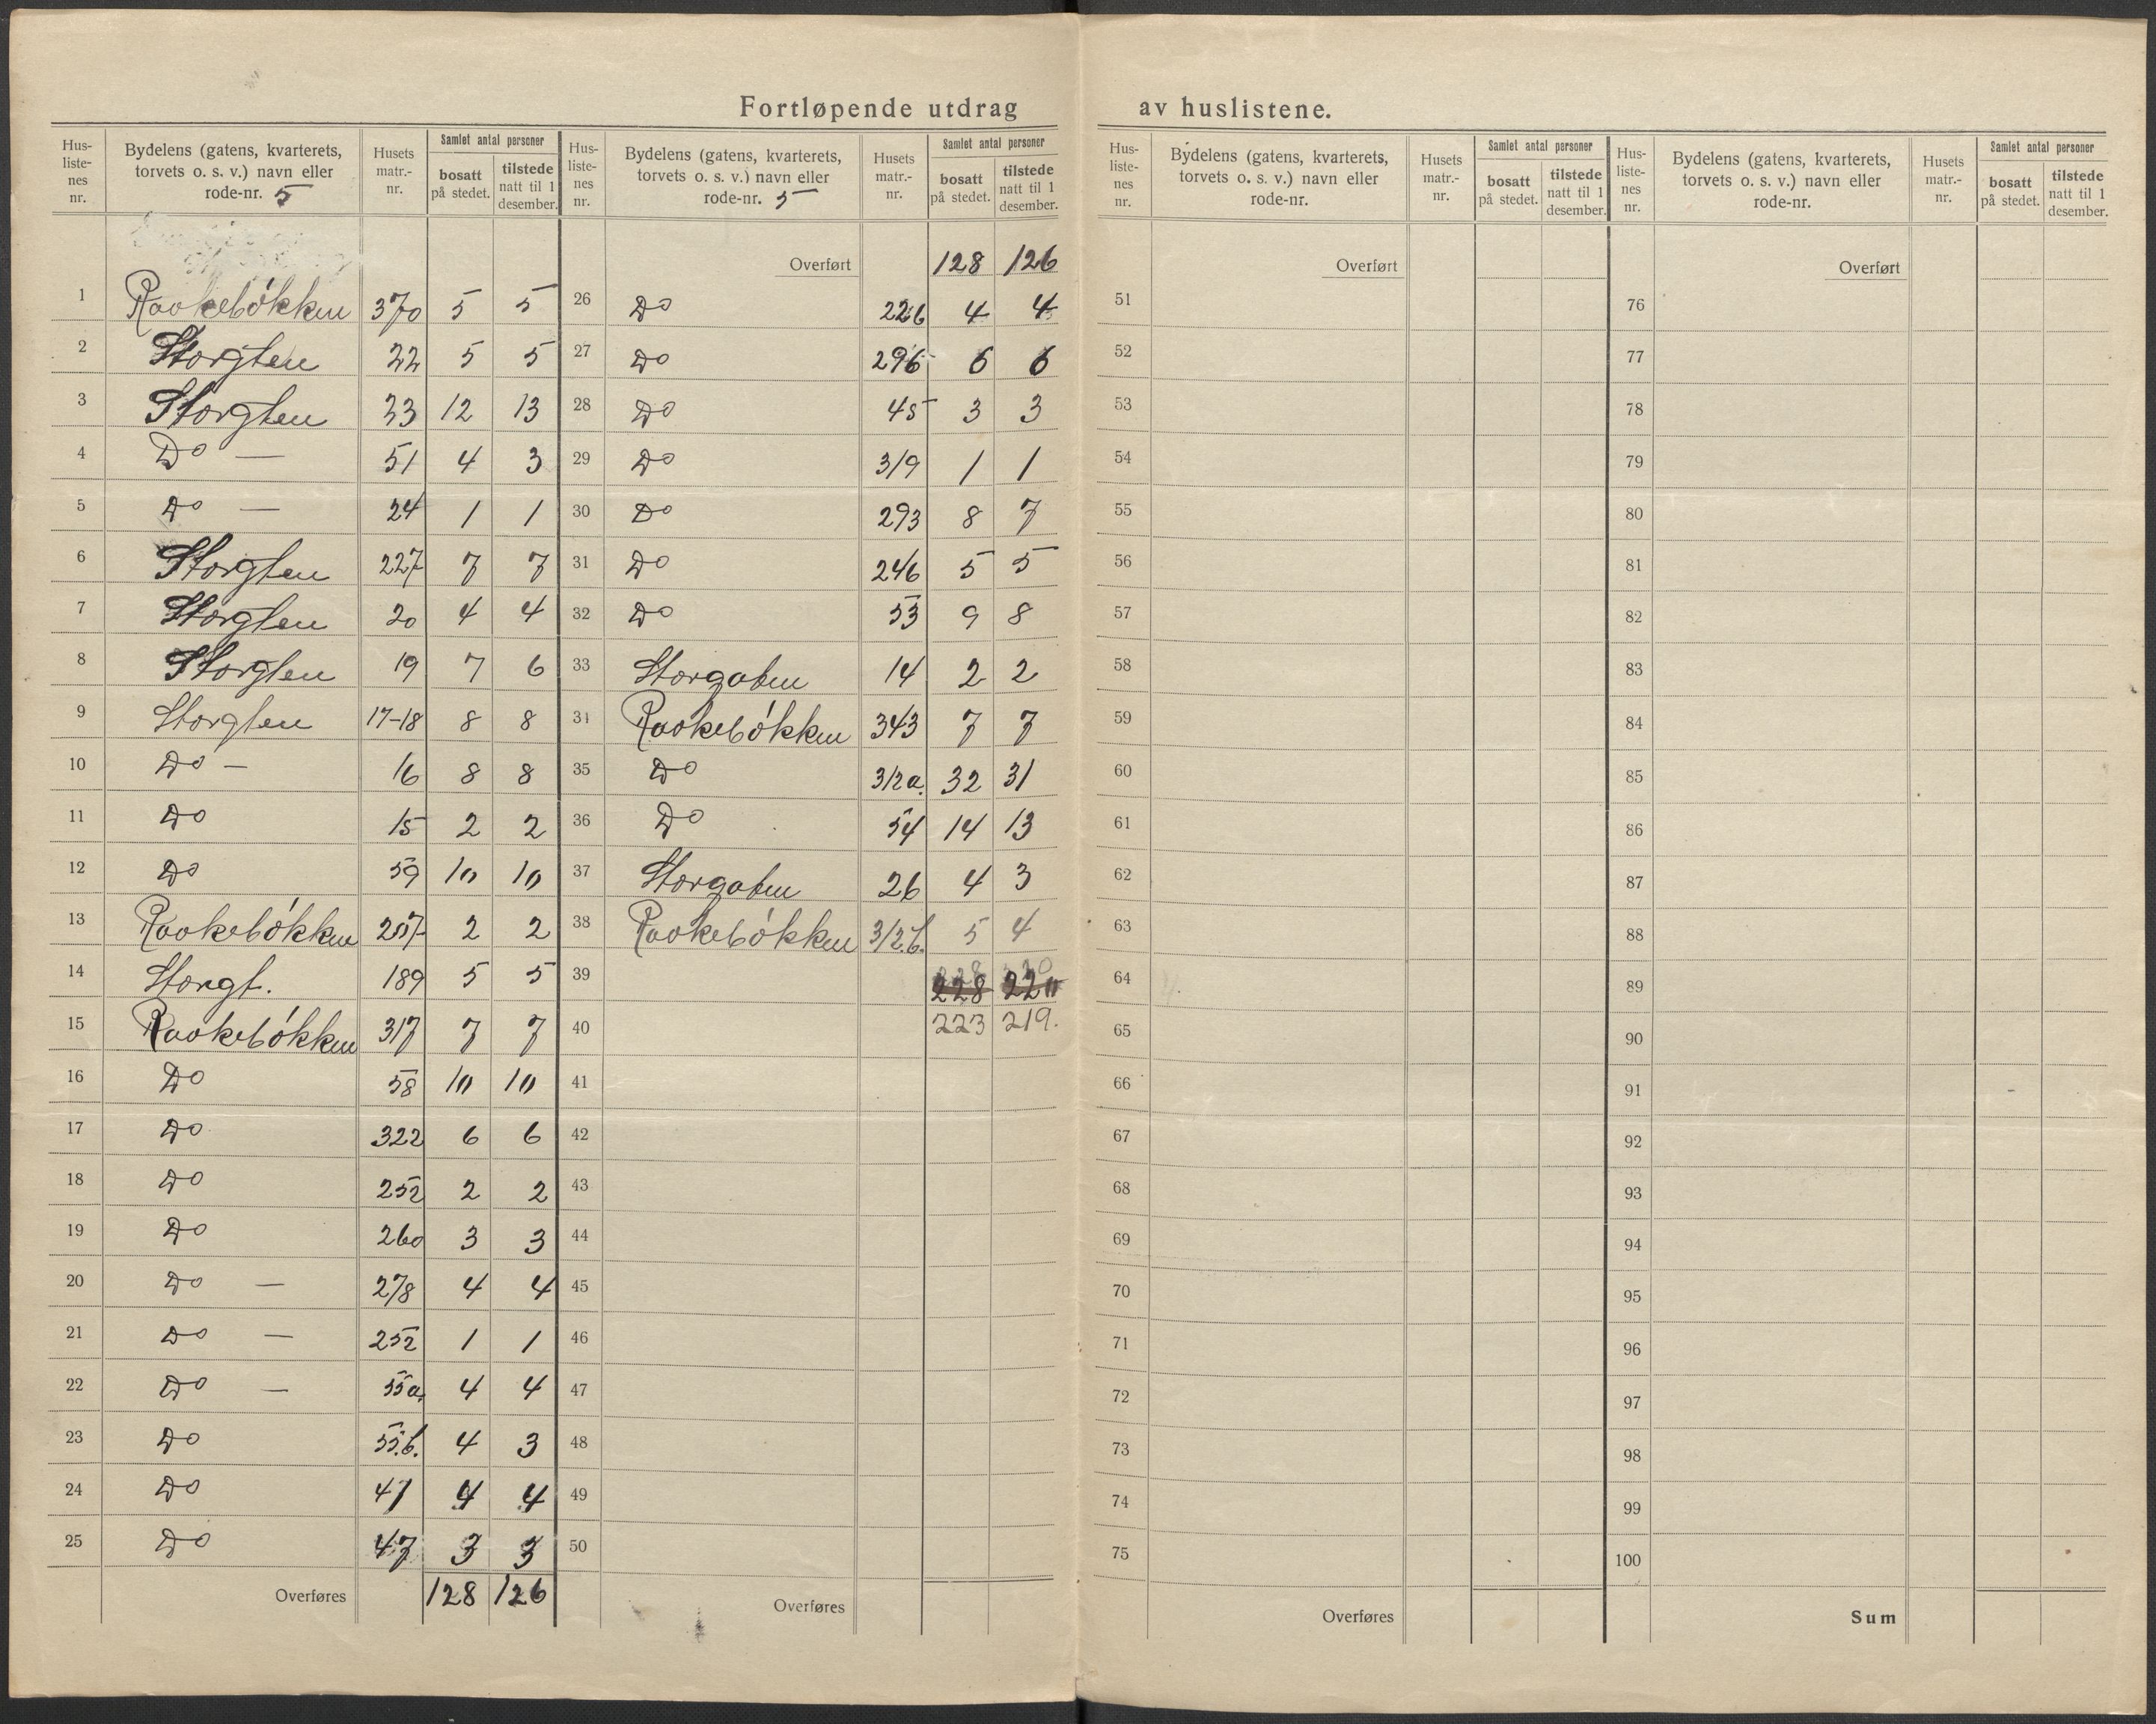 Fortløpende utdrag av huslistene.
Hus-listenes nr. | Bydelens (gatens, kvarterets, torvets o. s. v.) navn eller rode-nr. 5 | Husets matr.-nr. | Samlet antal personer bosatt på stedet. | tilstede natt til 1 desember.
1 Raokebökken 370 5 5
2 Storgten 22 5 5
3 Storgten 23 12 13
4 Do — 51 4 3
5 Do — 24 1 1
6 Storgten 227 7 7
7 Storgten 20 4 4
8 Storgten 19 7 6
9 Storgten 17-18 8 8
10 Do — 16 8 8
11 Do 15 2 2
12 Do 59 10 10
13 Raokebökken 257 2 2
14 Storgt. 189 5 5
15 Raokebökken 317 7 7
16 Do 58 10 10
17 Do 322 6 6
18 Do 252 2 2
19 Do 260 3 3
20 Do — 278 4 4
21 Do — 252 1 1
22 Do — 55a. 4 4
23 Do 55.b. 4 3
24 Do 47 4 4
25 Do 47 3 3
Overføres 128 126
Hus-listenes nr. | Bydelens (gatens, kvarterets, torvets o. s. v.) navn eller rode-nr. 5 | Husets matr.-nr. | Samlet antal personer bosatt på stedet. | tilstede natt til 1 desember.
Overført 128 126
26 Do 226 4 4
27 Do 296 6 6
28 Do 45 3 3
29 Do 319 1 1
30 Do 293 8 7
31 Do 246 5 5
32 Do 53 9 8
33 Storgaten 14 2 2
34 Raokebökken 343 7 7
35 Do 312a. 32 31
36 Do 54 14 13
37 Storgaten 26 4 3
38 Raokebökken 312.b. 5 4
39 228 220
40 223 219.
41
42
43
44
45
46
47
48
49
50
Overføres
Hus-listenes nr. | Bydelens (gatens, kvarterets, torvets o. s. v.) navn eller rode-nr. | Husets matr.-nr. | Samlet antal personer bosatt på stedet. | tilstede natt til 1 desember.
Overført
51
52
53
54
55
56
57
58
59
60
61
62
63
64
65
66
67
68
69
70
71
72
73
74
75
Overføres
Hus-listenes nr. | Bydelens (gatens, kvarterets, torvets o. s. v.) navn eller rode-nr. | Husets matr.-nr. | Samlet antal personer bosatt på stedet. | tilstede natt til 1 desember.
Overført
76
77
78
79
80
81
82
83
84
85
86
87
88
89
90
91
92
93
94
95
96
97
98
99
100
Sum